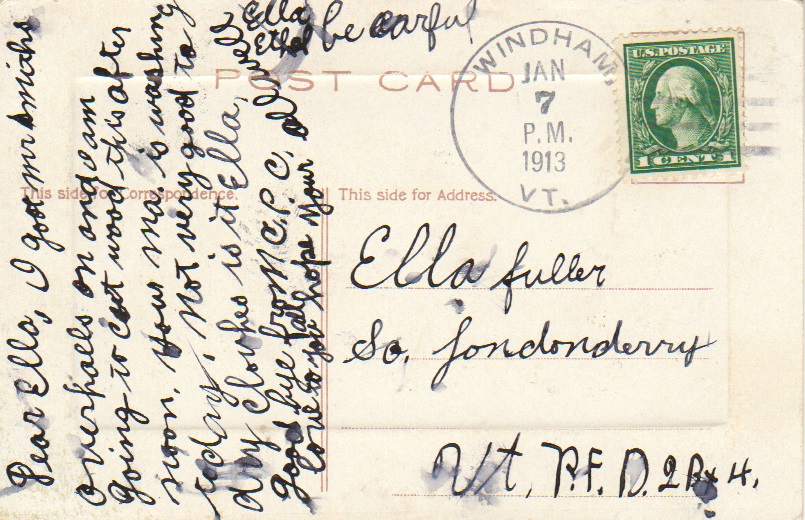 POST CARD
This side for Correspondence.
This side for Address.
WINDHAM,
JAN
7
P.M.
1913
VT.
U.S. POSTAGE
1 CENT 1
Ella fuller
So. Londonderry
Vt, R.F.D. 2 Bx 4.
Dear Ella, I got mr smiths
overhalls on and am
going to cut wood this after
noon. your ma is washing
today, not very good to
dry clothes is it Ella,
Good bye from C.P.C.
love to you hope your all well
Ella
Ethel be carful